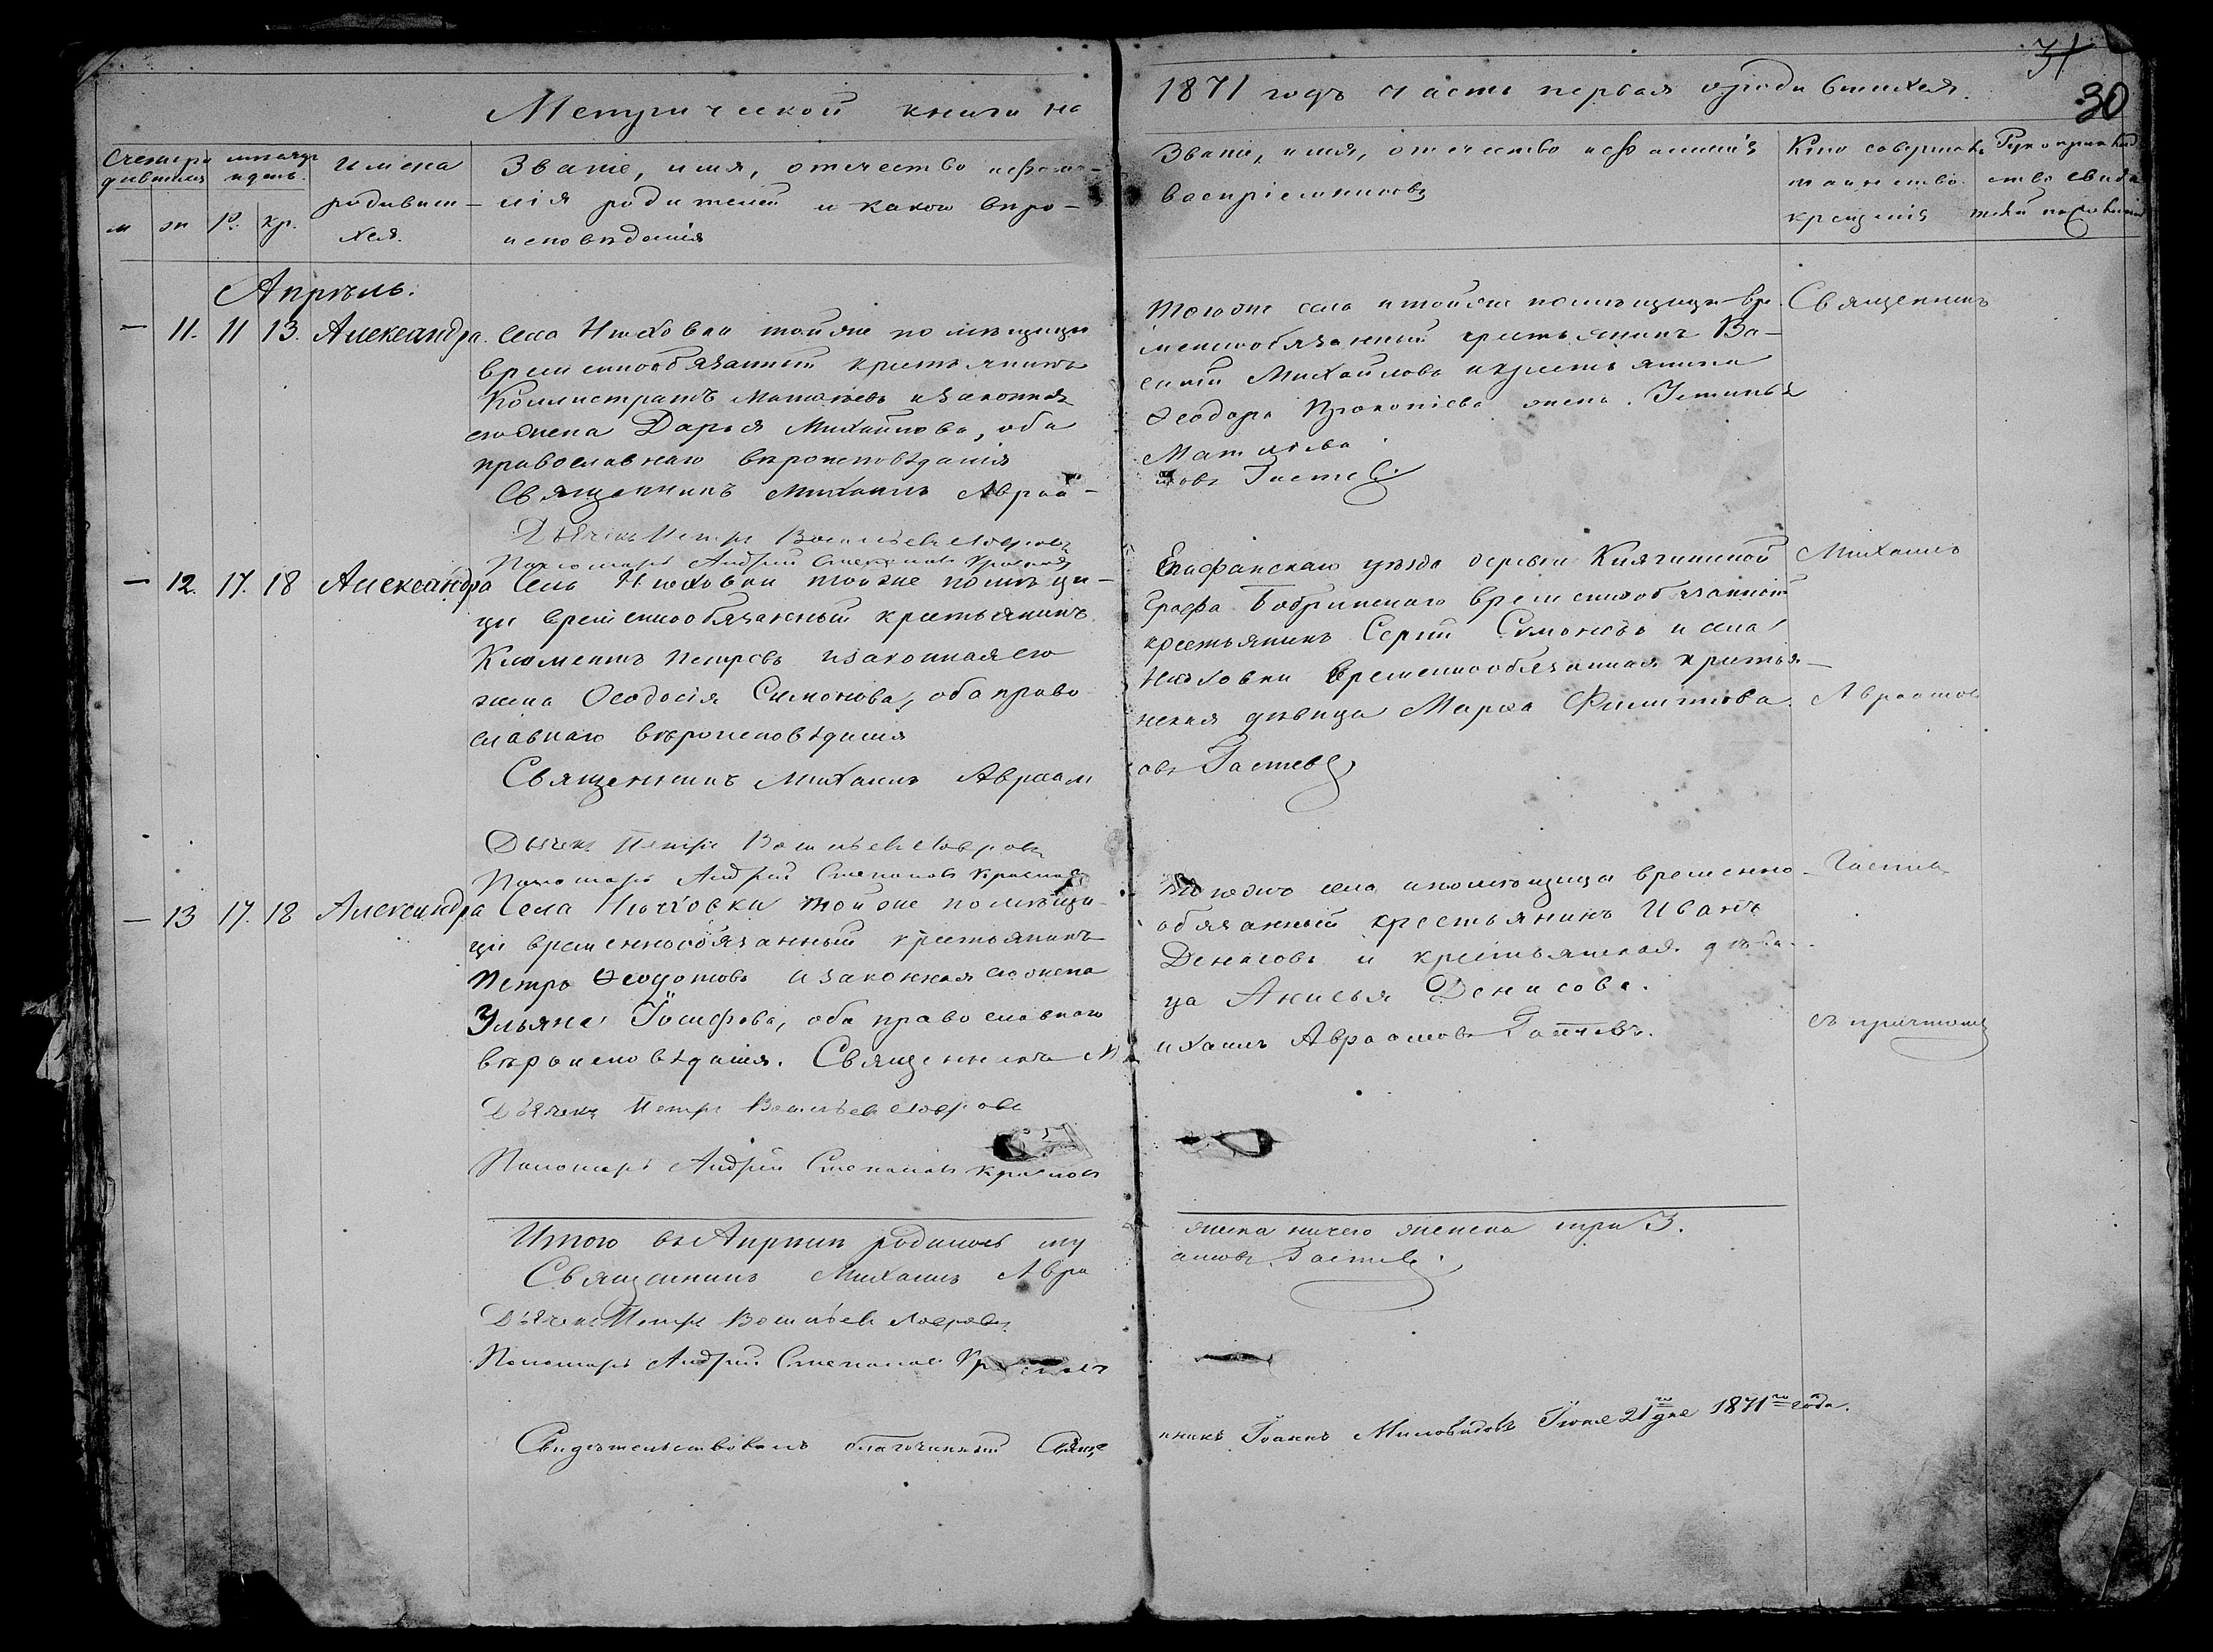 31
30
Метрической книги на 1871 годъ часть первая о родившихся.
Счетъ родившихся
мѣсяцъ и день.
Имена родившихся.
Званіе, имя, отечество и фамилія родителей и какого вѣроисповѣданія
Званіе, имя, отечество и фамилія воспріемниковъ
Кто совершалъ таинство крещенія
м ж р. кр.
Апрѣль.
— 11. 11 13. Александра.
Села Нюховки той же помѣщицы
временнообязанный крестьянинъ
Каллистратъ Матвѣевъ и законная
его жена Дарья Михайлова, оба
православнаго вѣроисповѣданія
Священникъ Михаилъ Авраа-
мовъ Гастевъ
Дьячекъ Петръ Васильевъ Лавровъ
Пономарь Андрей Степановъ Красновъ
Тогоже села и тойже помѣщицы вре-
меннообязанный крестьянинъ Ва-
силій Михайловъ и крестьянина
Ѳеодора Прокопіева жена Устинья
Матвѣева
Священникъ
— 12. 17. 18 Александра
Села Нюховки тойже помѣщи-
цы временнообязанный крестьянинъ
Климентъ Петровъ и законная его
жена Ѳеодосія Симонова, оба право
славнаго вѣроисповѣданія
Священникъ Михаилъ Авраам
овъ Гастевъ
Дьячекъ Петръ Васильевъ Лавровъ
Пономарь Андрей Степановъ Красновъ
Епифанскаго уѣзда деревни Княгининой
Графа Бобринскаго временнообязанный
крестьянинъ Сергій Симоновъ и села
Нюховки временнообязанная крестья-
нская дѣвица Марѳа Филиппова.
Михаилъ
Авраамовъ
— 13 17. 18 Александра
Села Нюховки той же помѣщи-
цы временнообязанный крестьянинъ
Петръ Ѳеодотовъ и законная его жена
Ульяна Іосифова, оба православнаго
вѣроисповѣданія. Священникъ М
ихаилъ Авраамовъ Гастевъ.
Дьячекъ Петръ Васильевъ Лавровъ
Пономарь Андрей Степановъ Красновъ
Тогоже села и помѣщицы временно-
обязанный крестьянинъ Иванъ
Денисовъ и крестьянская дѣви-
ца Анисья Денисова.
Гастевъ
съ причтомъ
Итого въ Апрѣлѣ родилось му
жеска ничего женска три 3.
Священникъ Михаилъ Авра
амовъ Гастевъ.
Дьячекъ Петръ Васильевъ Лавровъ
Пономарь Андрей Степановъ Красновъ
Свидѣтельствовалъ благочинный Свяще
нникъ Іоаннъ Миловидовъ Іюня 21го дня 1871го года.